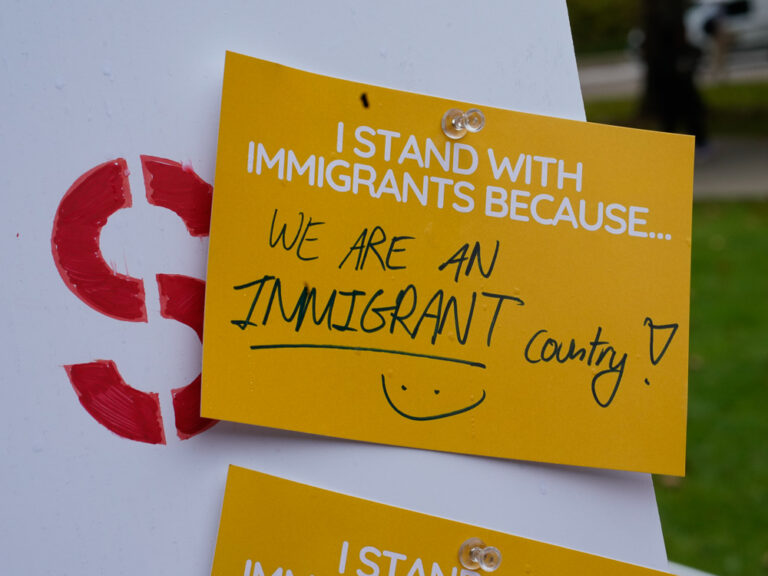 S
I STAND WITH
IMMIGRANTS BECAUSE...
WE ARE AN
IMMIGRANT country!
I STAND